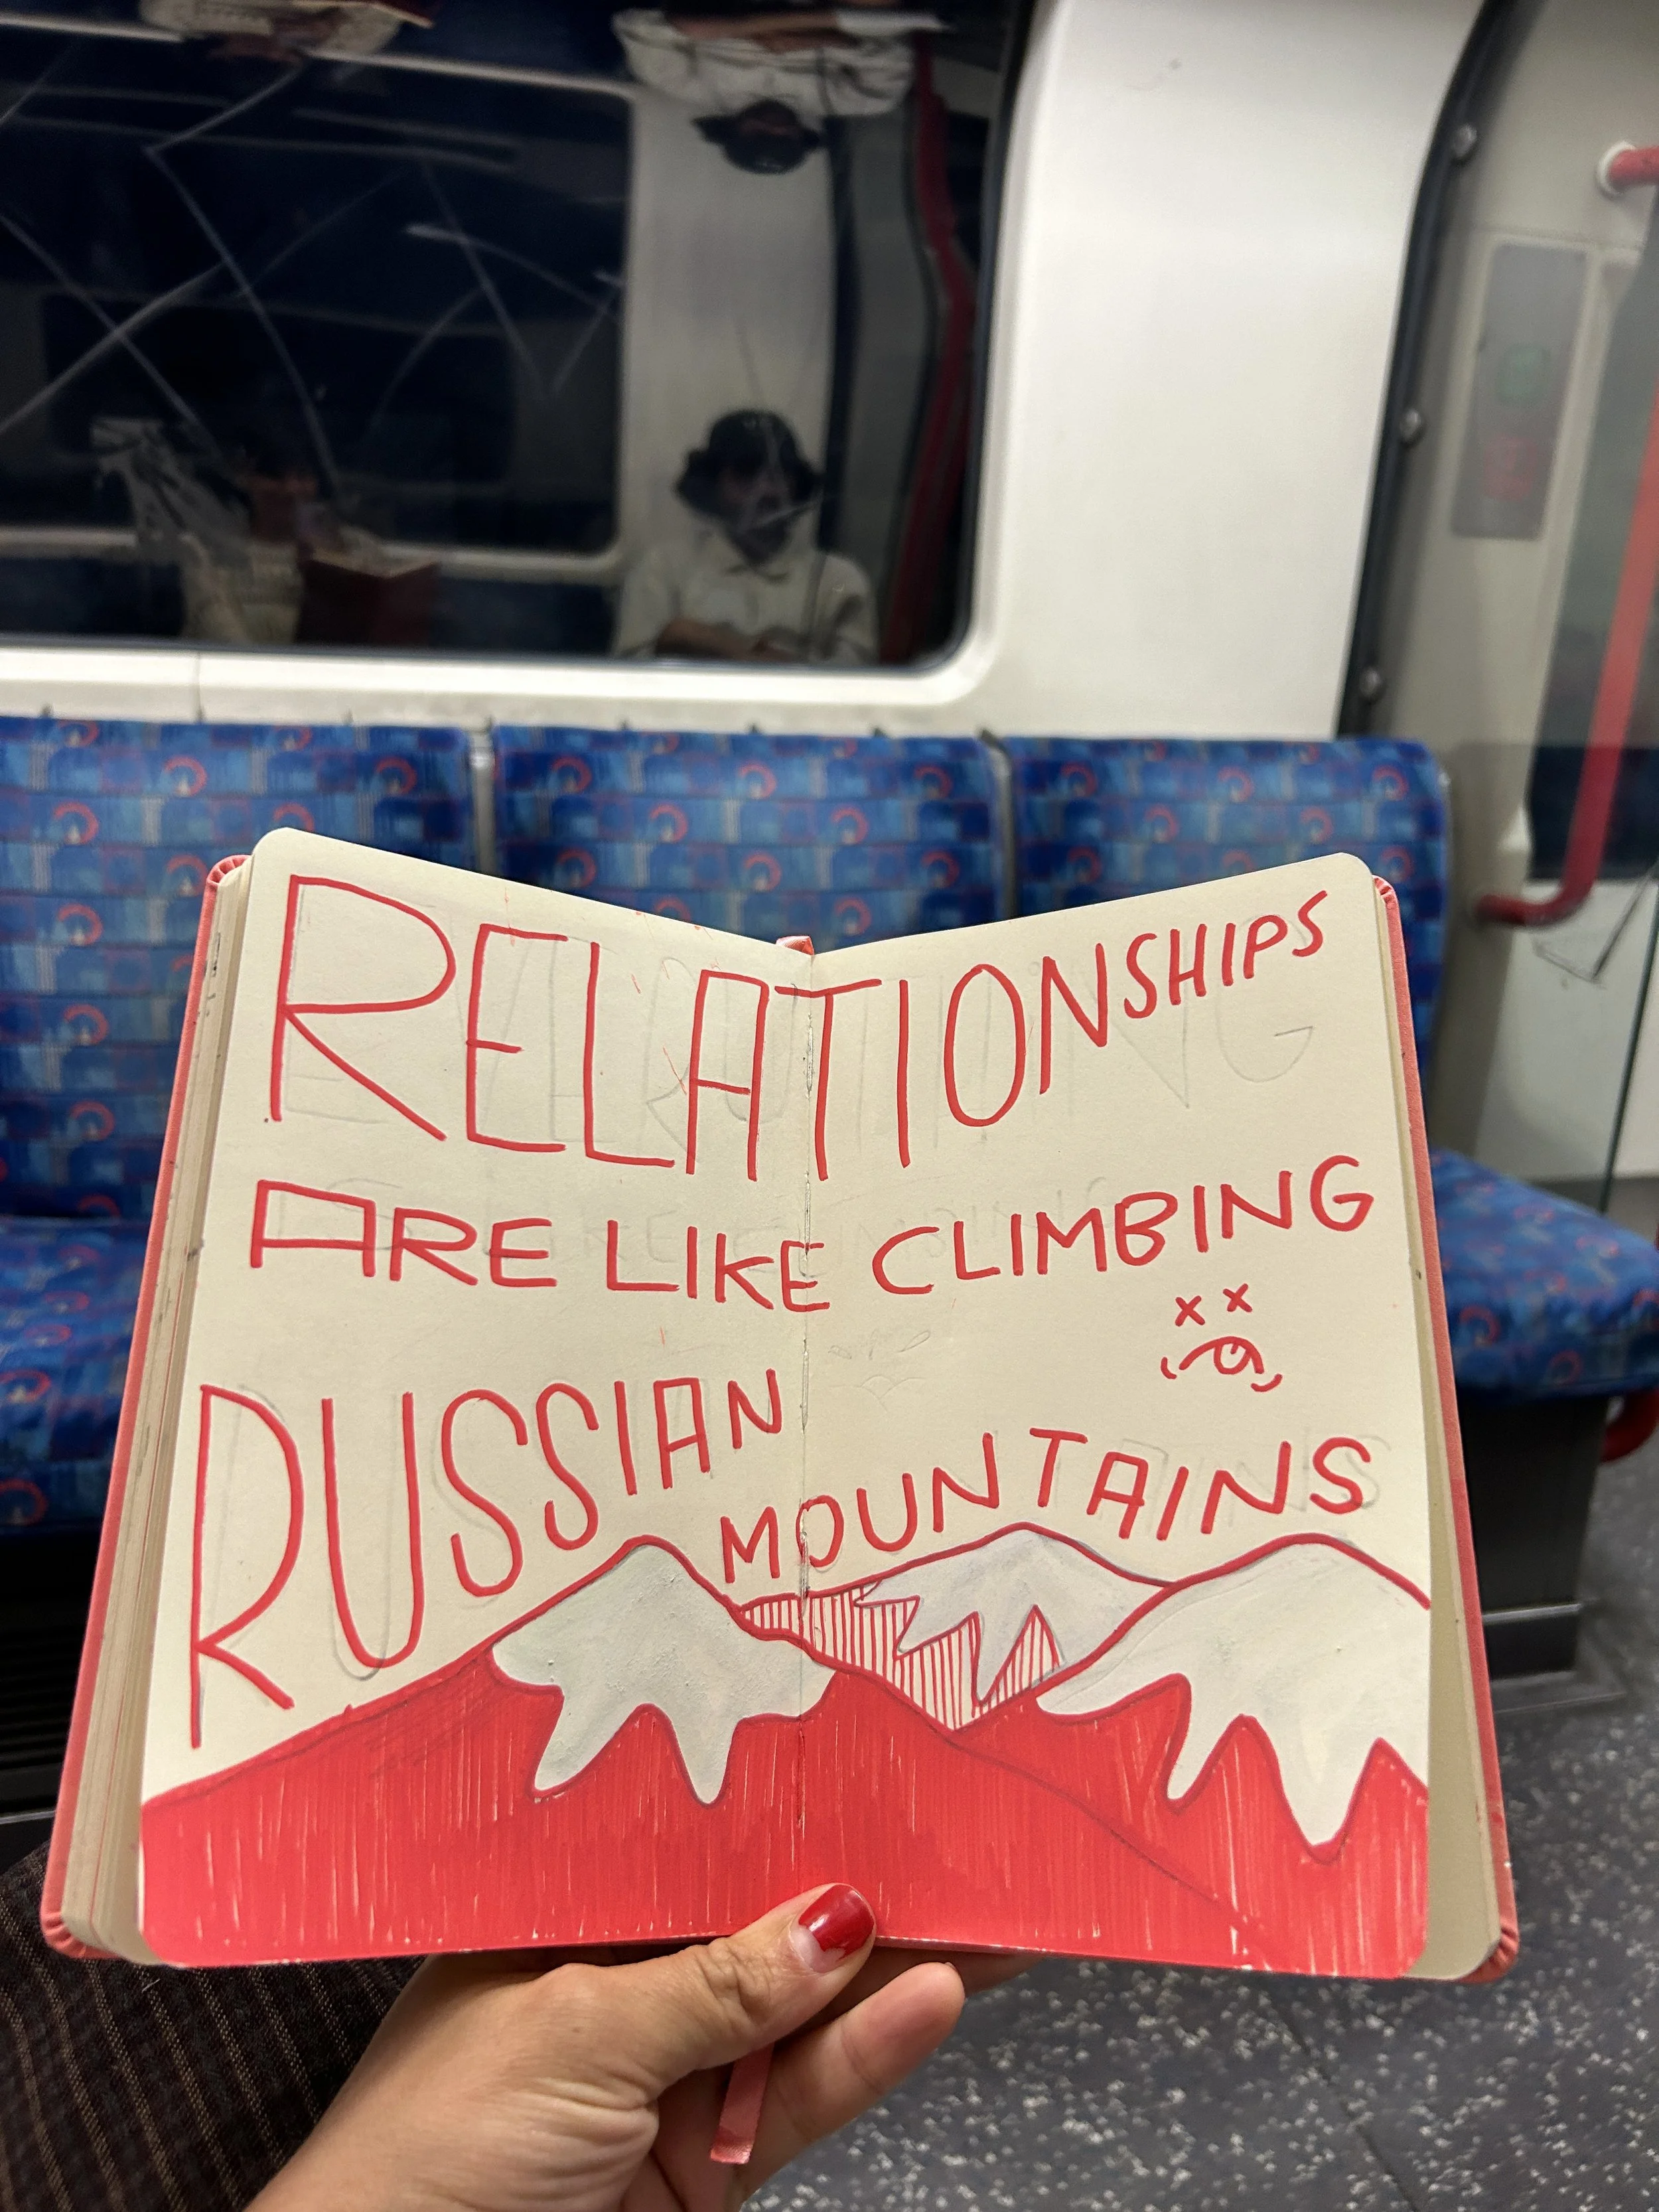 RELATIONSHIPS
ARE LIKE CLIMBING
RUSSIAN
MOUNTAINS